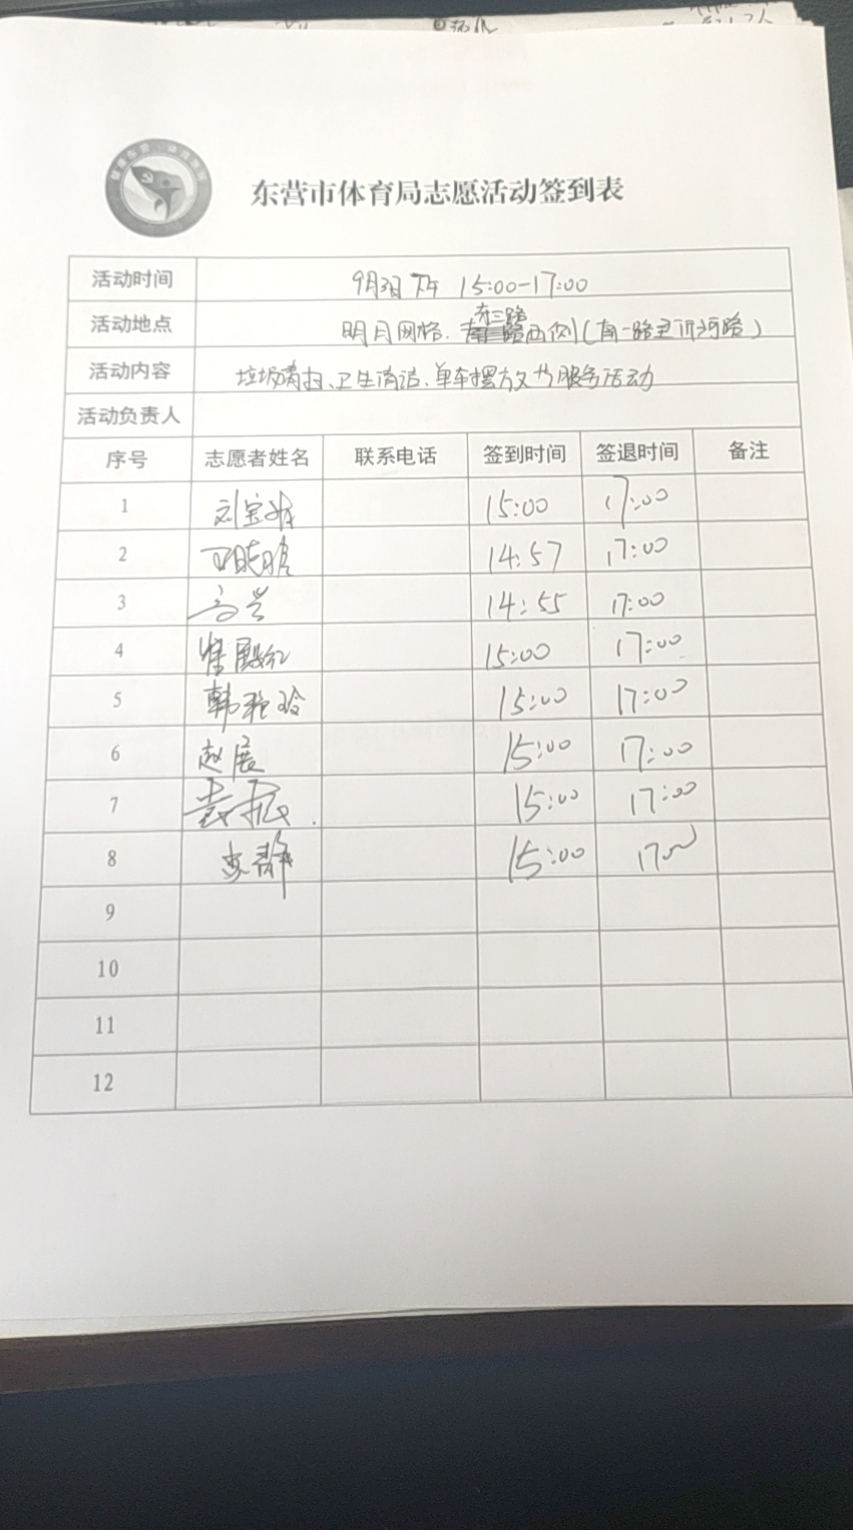 东营市体育局志愿活动签到表
活动时间 9月3日下午 15:00-17:00
活动地点 明月网格. 东三路西侧(南一路至沂河路)
活动内容 垃圾清扫、卫生清洁、单车摆放等服务活动
活动负责人
序号 志愿者姓名 联系电话 签到时间 签退时间 备注
1 刘宝 15:00 17:00
2 14:57 17:00
3 高兴 14:55 17:00
4 崔殿红 15:00 17:00
5 韩雅玲 15:00 17:00
6 赵展 15:00 17:00
7 袁振 15:00 17:00
8 李静 15:00 17:00
9
10
11
12